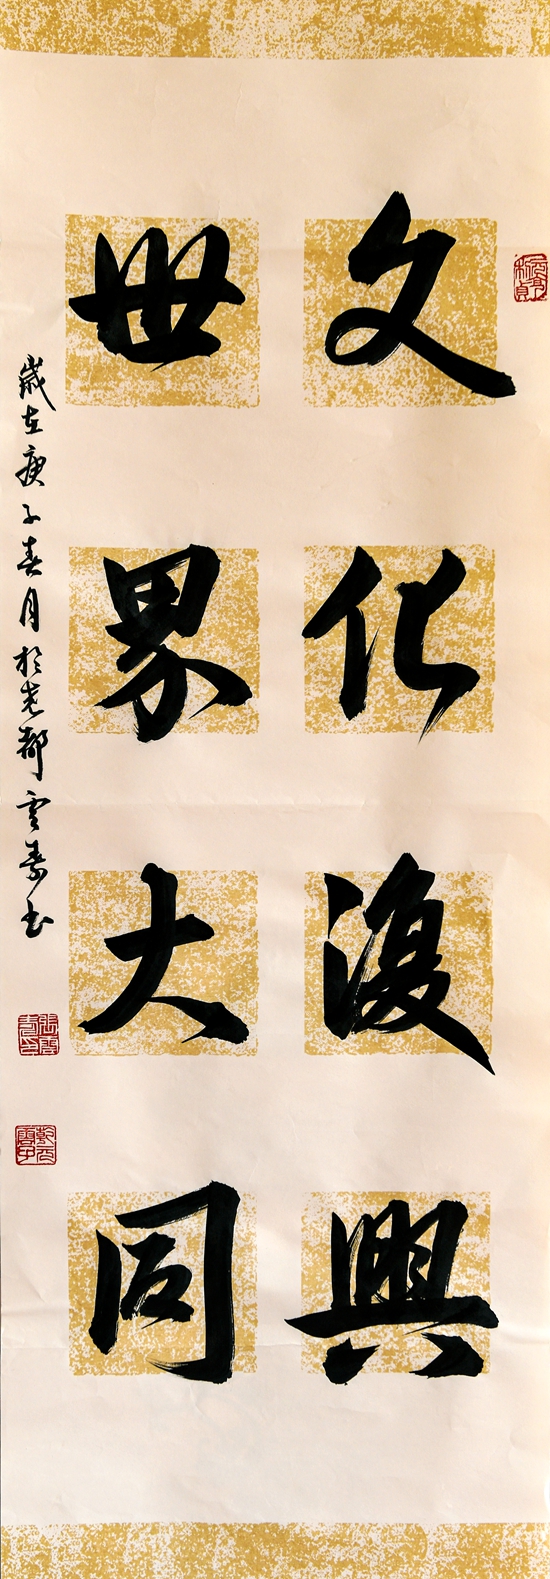 文化復興
世界大同
歲在庚子春月於光都雲春书